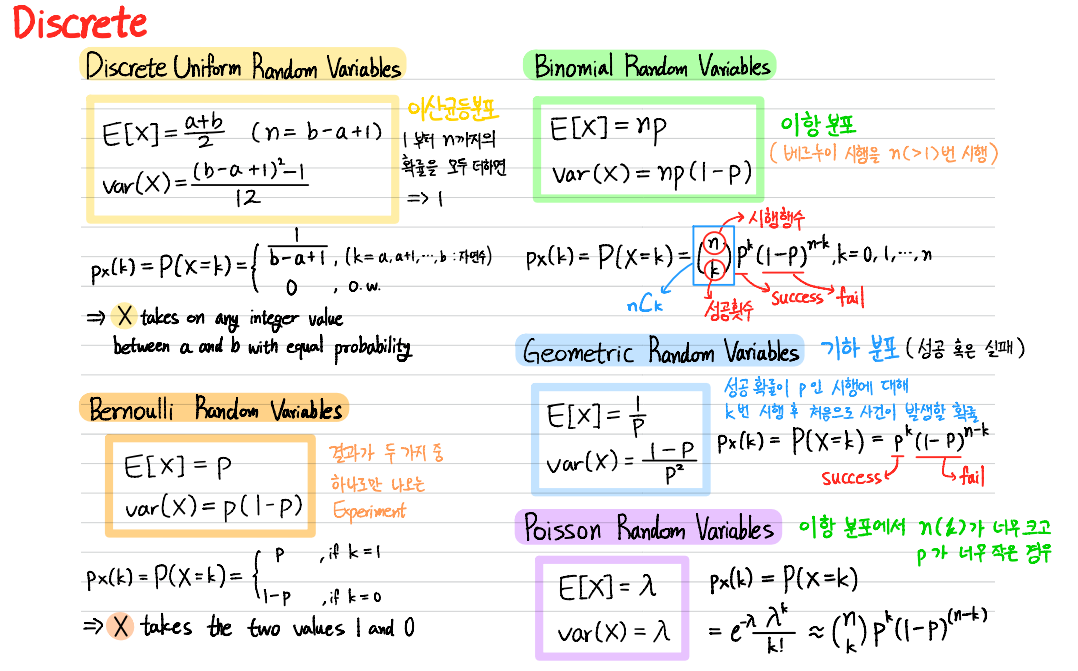 Discrete
Discrete Uniform Random Variables
E[X] = a+b/2 (n = b-a+1)
var(X) = (b-a+1)²-1/12
이산균등분포
1부터 n까지의
확률을 모두 더하면
=> 1
px(k) = P(X=k) = { 1/b-a+1 , (k=a, a+1, ..., b : 자연수)
0 , o.w.
⇒ X takes on any integer value
between a and b with equal probability
Bernoulli Random Variables
E[X] = p
var(X) = p(1-p)
결과가 두 가지 중
하나로만 나오는
Experiment
px(k) = P(X=k) = { p , if k=1
1-p , if k=0
⇒ X takes the two values 1 and 0
Binomial Random Variables
E[X] = np
var(X) = np(1-p)
이항 분포
(베르누이 시행을 n(>1)번 시행)
시행횟수
px(k) = P(X=k) = (n k) p^k (1-p)^n-k, k=0, 1, ..., n
nCk
성공횟수
success
fail
Geometric Random Variables 기하 분포 (성공 혹은 실패)
E[X] = 1/p
var(X) = 1-p/p²
성공 확률이 p인 시행에 대해
k번 시행 후 처음으로 사건이 발생할 확률
px(k) = P(X=k) = p^k (1-p)^n-k
success
fail
Poisson Random Variables 이항 분포에서 n(소)가 너무 크고
p가 너무 작은 경우
E[X] = λ
var(X) = λ
px(k) = P(X=k)
= e^-λ λ^k/k! ≈ (n k) p^k (1-p)^(n-k)